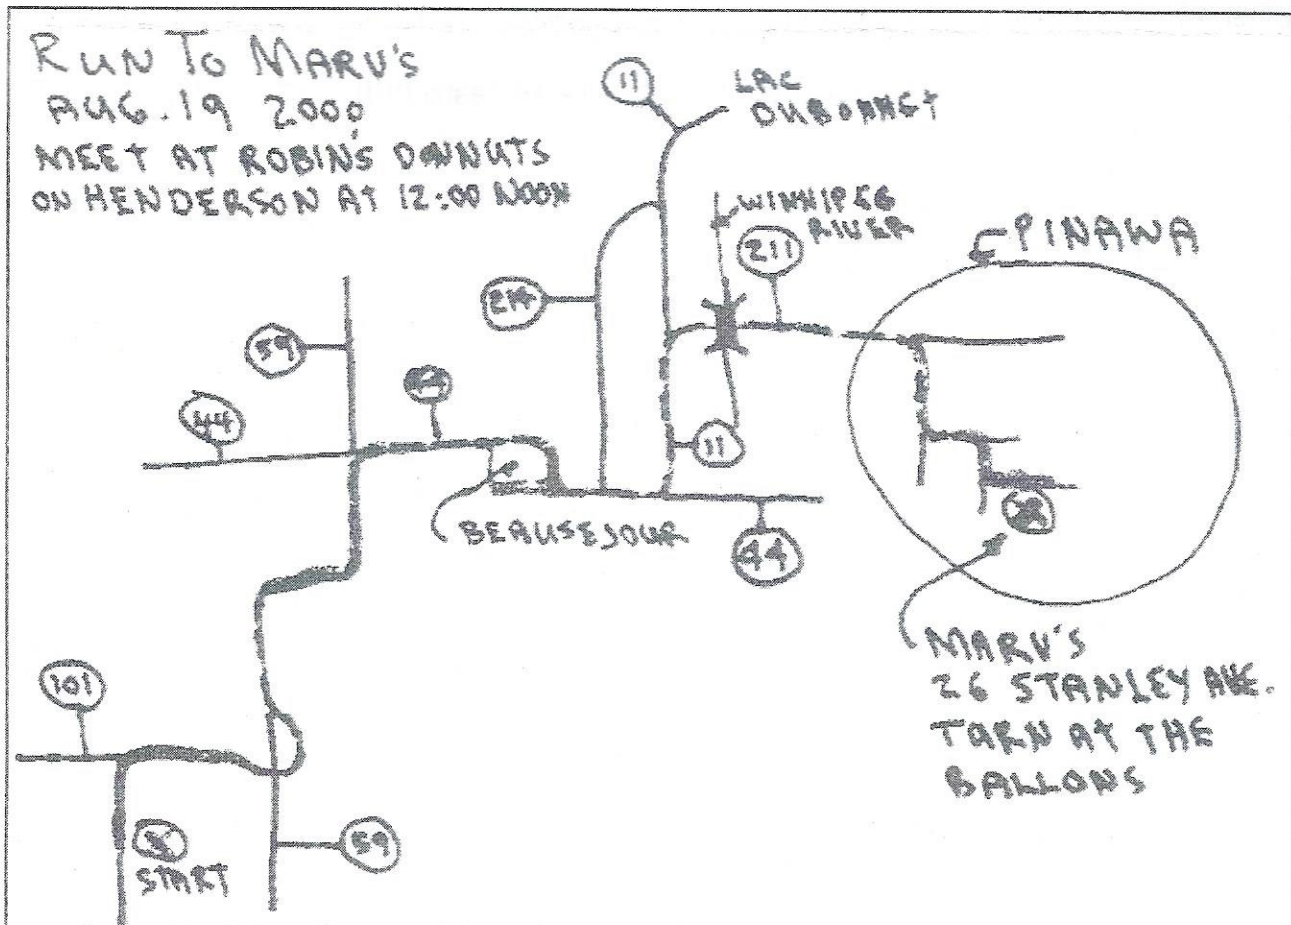 RUN TO MARV'S
AUG. 19 2000
MEET AT ROBIN'S DONNUTS
ON HENDERSON AT 12:00 NOON
11
LAC
DUBONNET
WINNIPEG
RIVER
211
PINAWA
214
59
44
44
11
BEAUSEJOUR
44
MARV'S
26 STANLEY AVE.
TURN AT THE
BALLONS
101
59
START